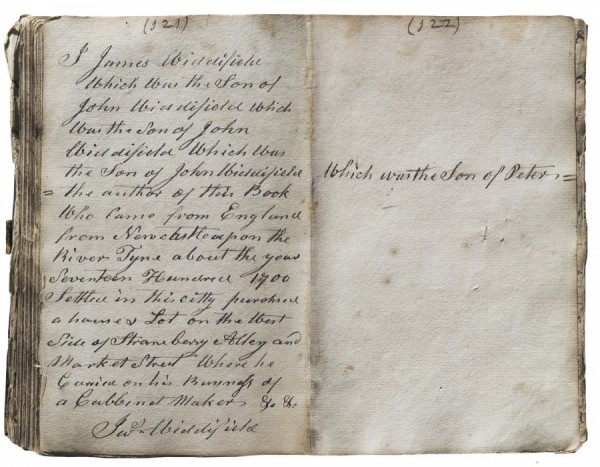 (121)
I James Widdifield
Which Was the Son of
John Widdifield Which
Was the Son of John
Widdifield Which Was
the Son of John Widdifield
= the author of this Book
Who Came from England
from Newcastle upon the
River Tyne about the year
Seventeen Hundred 1700
Settled in this citty purchsed
a house & Lot on the West
Side of Strawberry Alley and
Market Street Where he
Carried on his Business of
a Cabbinet Maker &c. &c.
Jas. Widdifield
(122)
Which was the Son of Peter =